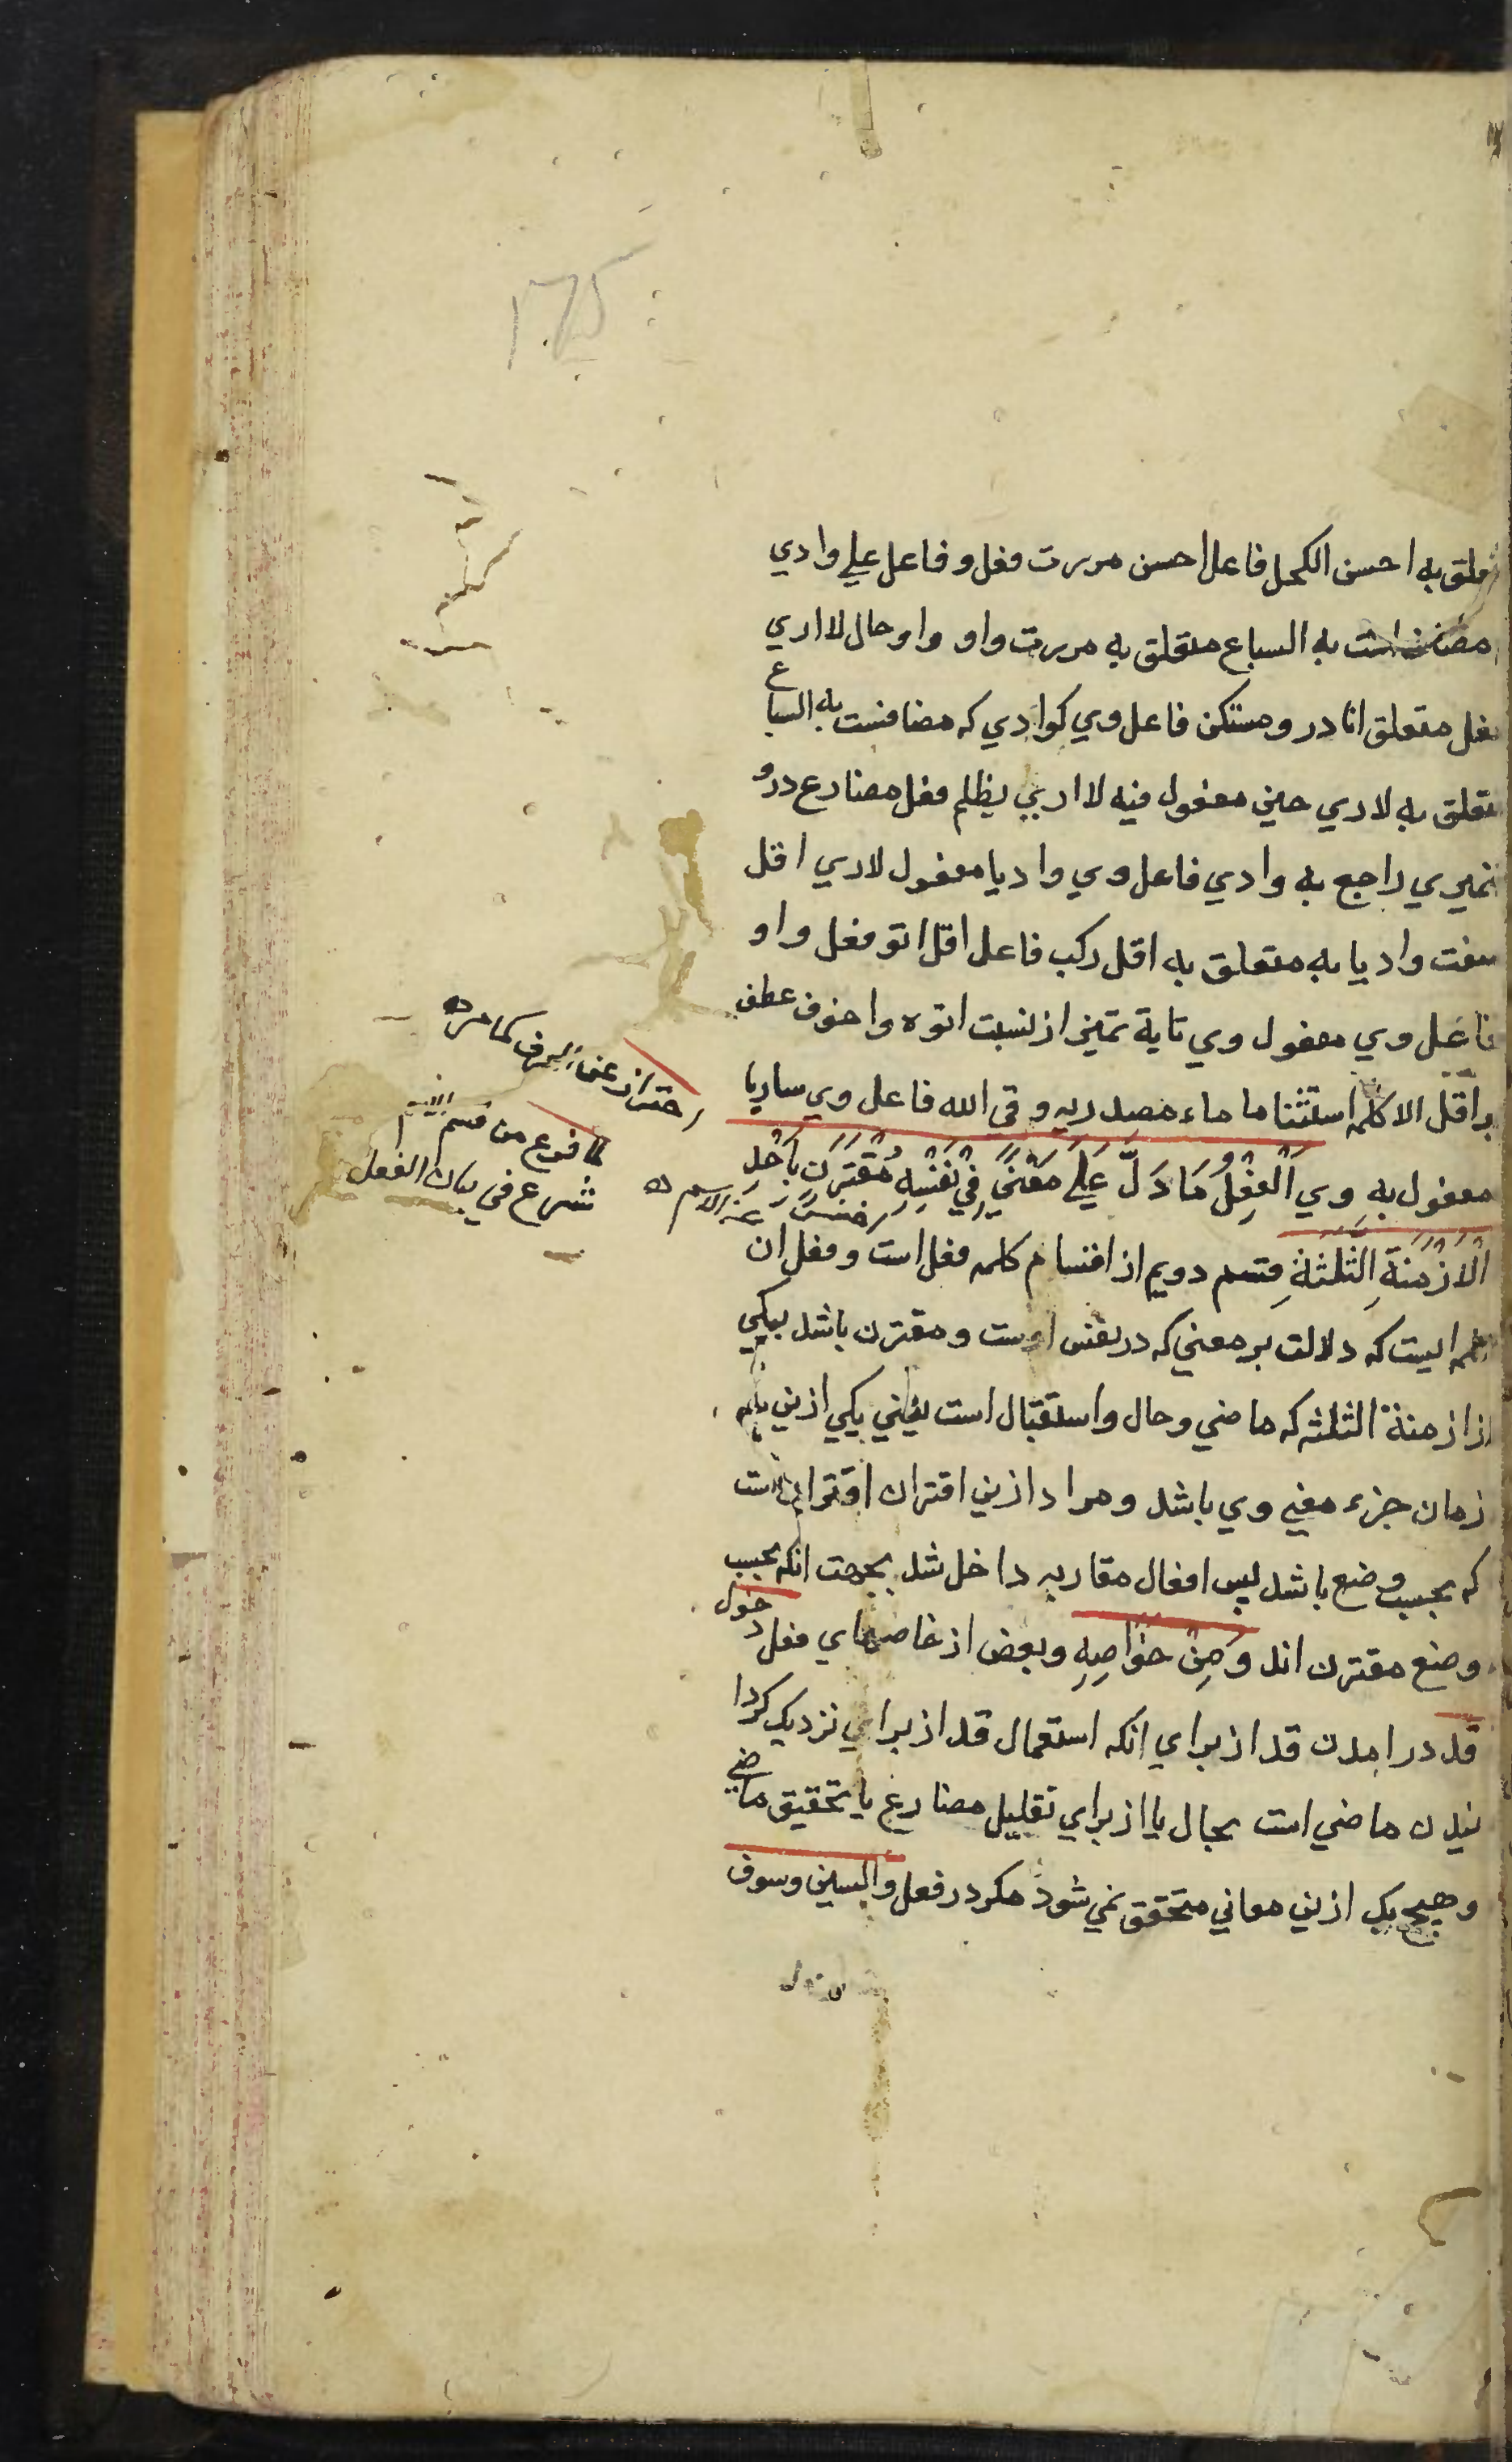 متعلق به احسن الكحل فاعل احسن مررت فعل و فاعل علي وادي
مضافست به السباع متعلق به مررت واو واو حال لا اري
فعل متعلق انا در و مستكن فاعل وي كوادي كه مضافست به السباع
متعلق به لا اري حين مفعول فيه لا اري يظلم فعل مضارع درو
ضميري راجع به وادي فاعل وي واديا مفعول لا اري اقل
صفت واديا به متعلق به اقل ركب فاعل اقل اتو فعل واو
فاعل وي مفعول وي تاية تميز از نسبت اتوه واخوف عطف
بر اقل الا كلمه استثنا ما ماء مصدريه وقي الله فاعل وي ساريا
مفعول به وي اَلْفِعْلُ مَا دَلَّ عَلَي مَعْنًي فِي نَفْسِهِ مُقْتَرَنٍ بِاَحَدِ
الْاَزْمِنَةِ الثَّلٰثَةِ قسم دويم از اقسام كلمه فعل است و فعل ان
كلمه ايست كه دلالت بر معني كه در نفس اوست و مقترن باشد بيكي
از ازمنة الثلثه كه ماضي و حال و استقبال است يعني يكي ازين سه
زمان جزء معني وي باشد و مراد ازين اقتران اقتراني است
كه بحسب وضع باشد پس افعال مقاربه داخل شد بجهت انكه بحسب
وضع مقترن اند وَ مِنْ خَوَاصِهِ و بعض از خاصهاي فعل دخول
قد در امدن قد از براي انكه استعمال قد از براي نزديك كردا
نيدن ماضي است بحال يا از براي تقليل مضارع يا تحقيق ماضي
و هيچ يك ازين معاني متحقق نمي شود مكر در فعل والسين وسوف
احتراز عن الحرف كما مر
لما فرغ من قسم الاسم
شرع في بيان الفعل
احتراز عن الاسم